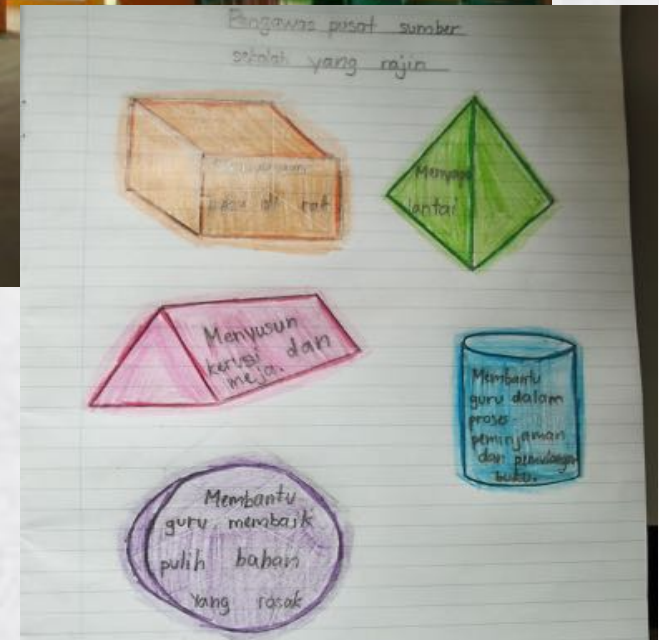 Pengawas pusat sumber
sekolah yang rajin
buku di rak
Menyapu
lantai
Menyusun
kerusi dan
meja.
Membantu
guru dalam
proses
peminjaman
dan pemulangan
buku.
Membantu
guru membaik
pulih bahan
yang rosak